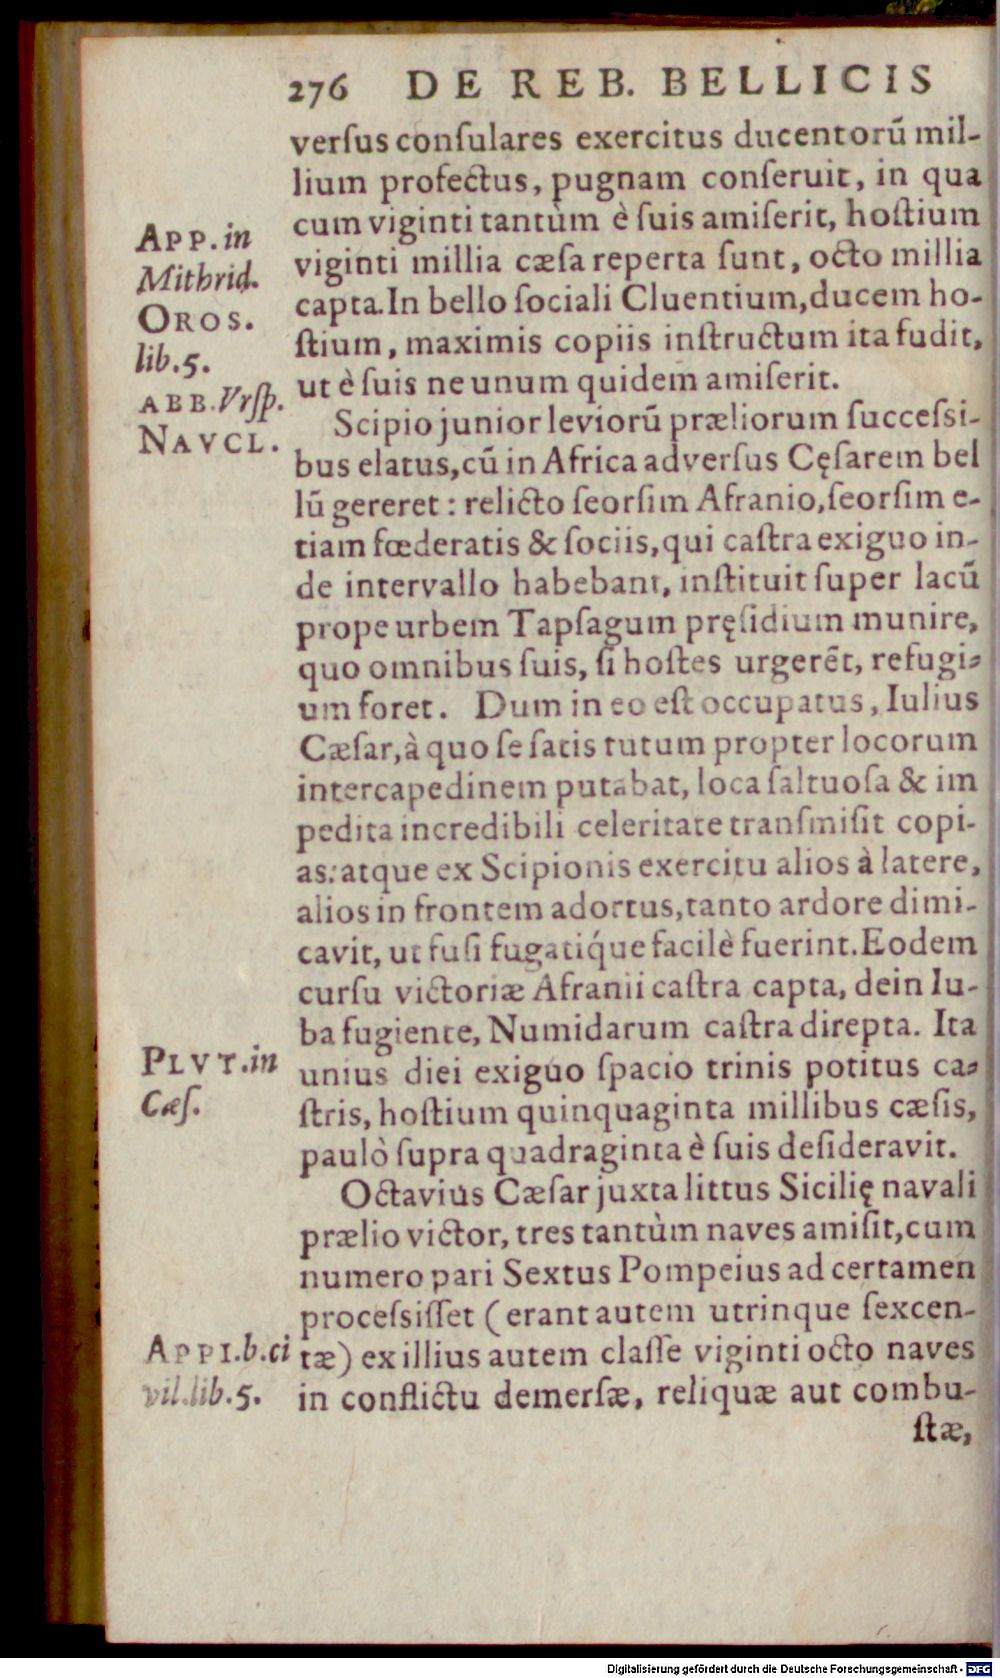 276 DE REB. BELLICIS
verſus conſulares exercitus ducentorũ mil-
lium profectus, pugnam conſeruit, in qua
cum viginti tantùm è ſuis amiſerit, hoſtium
viginti millia cæſa reperta ſunt, octo millia
capta. In bello ſociali Cluentium, ducem ho-
ſtium, maximis copiis inſtructum ita fudit,
ut è ſuis ne unum quidem amiſerit.
APP. in
Mithrid.
OROS.
lib. 5.
ABB. Vrſp.
NAVCL.
Scipio junior leviorũ præliorum ſucceſsi-
bus elatus, cũ in Africa adverſus Cęſarem bel
lũ gereret: relicto ſeorſim Afranio, ſeorſim e-
tiam fœderatis & ſociis, qui caſtra exiguo in-
de intervallo habebant, inſtituit ſuper lacũ
prope urbem Tapſagum pręſidium munire,
quo omnibus ſuis, ſi hoſtes urgerẽt, refugi-
um foret. Dum in eo eſt occupatus, Iulius
Cæſar, à quo ſe ſatis tutum propter locorum
intercapedinem putabat, loca ſaltuoſa & im
pedita incredibili celeritate tranſmiſit copi-
as: atque ex Scipionis exercitu alios à latere,
alios in frontem adortus, tanto ardore dimi-
cavit, ut fuſi fugatiq́ue facilè fuerint. Eodem
curſu victoriæ Afranii caſtra capta, dein Iu-
ba fugiente, Numidarum caſtra direpta. Ita
unius diei exiguo ſpacio trinis potitus ca-
ſtris, hoſtium quinquaginta millibus cæſis,
paulò ſupra quadraginta è ſuis deſideravit.
PLVT. in
Cæſ.
Octavius Cæſar juxta littus Sicilię navali
prælio victor, tres tantùm naves amiſit, cum
numero pari Sextus Pompeius ad certamen
proceſsiſſet (erant autem utrinque ſexcen-
tæ) ex illius autem claſſe viginti octo naves
in conflictu demerſæ, reliquæ aut combu-
APPI. b. ci
vil. lib. 5.
ſtæ,
Digitalisierung gefördert durch die Deutsche Forschungsgemeinschaft - DFG